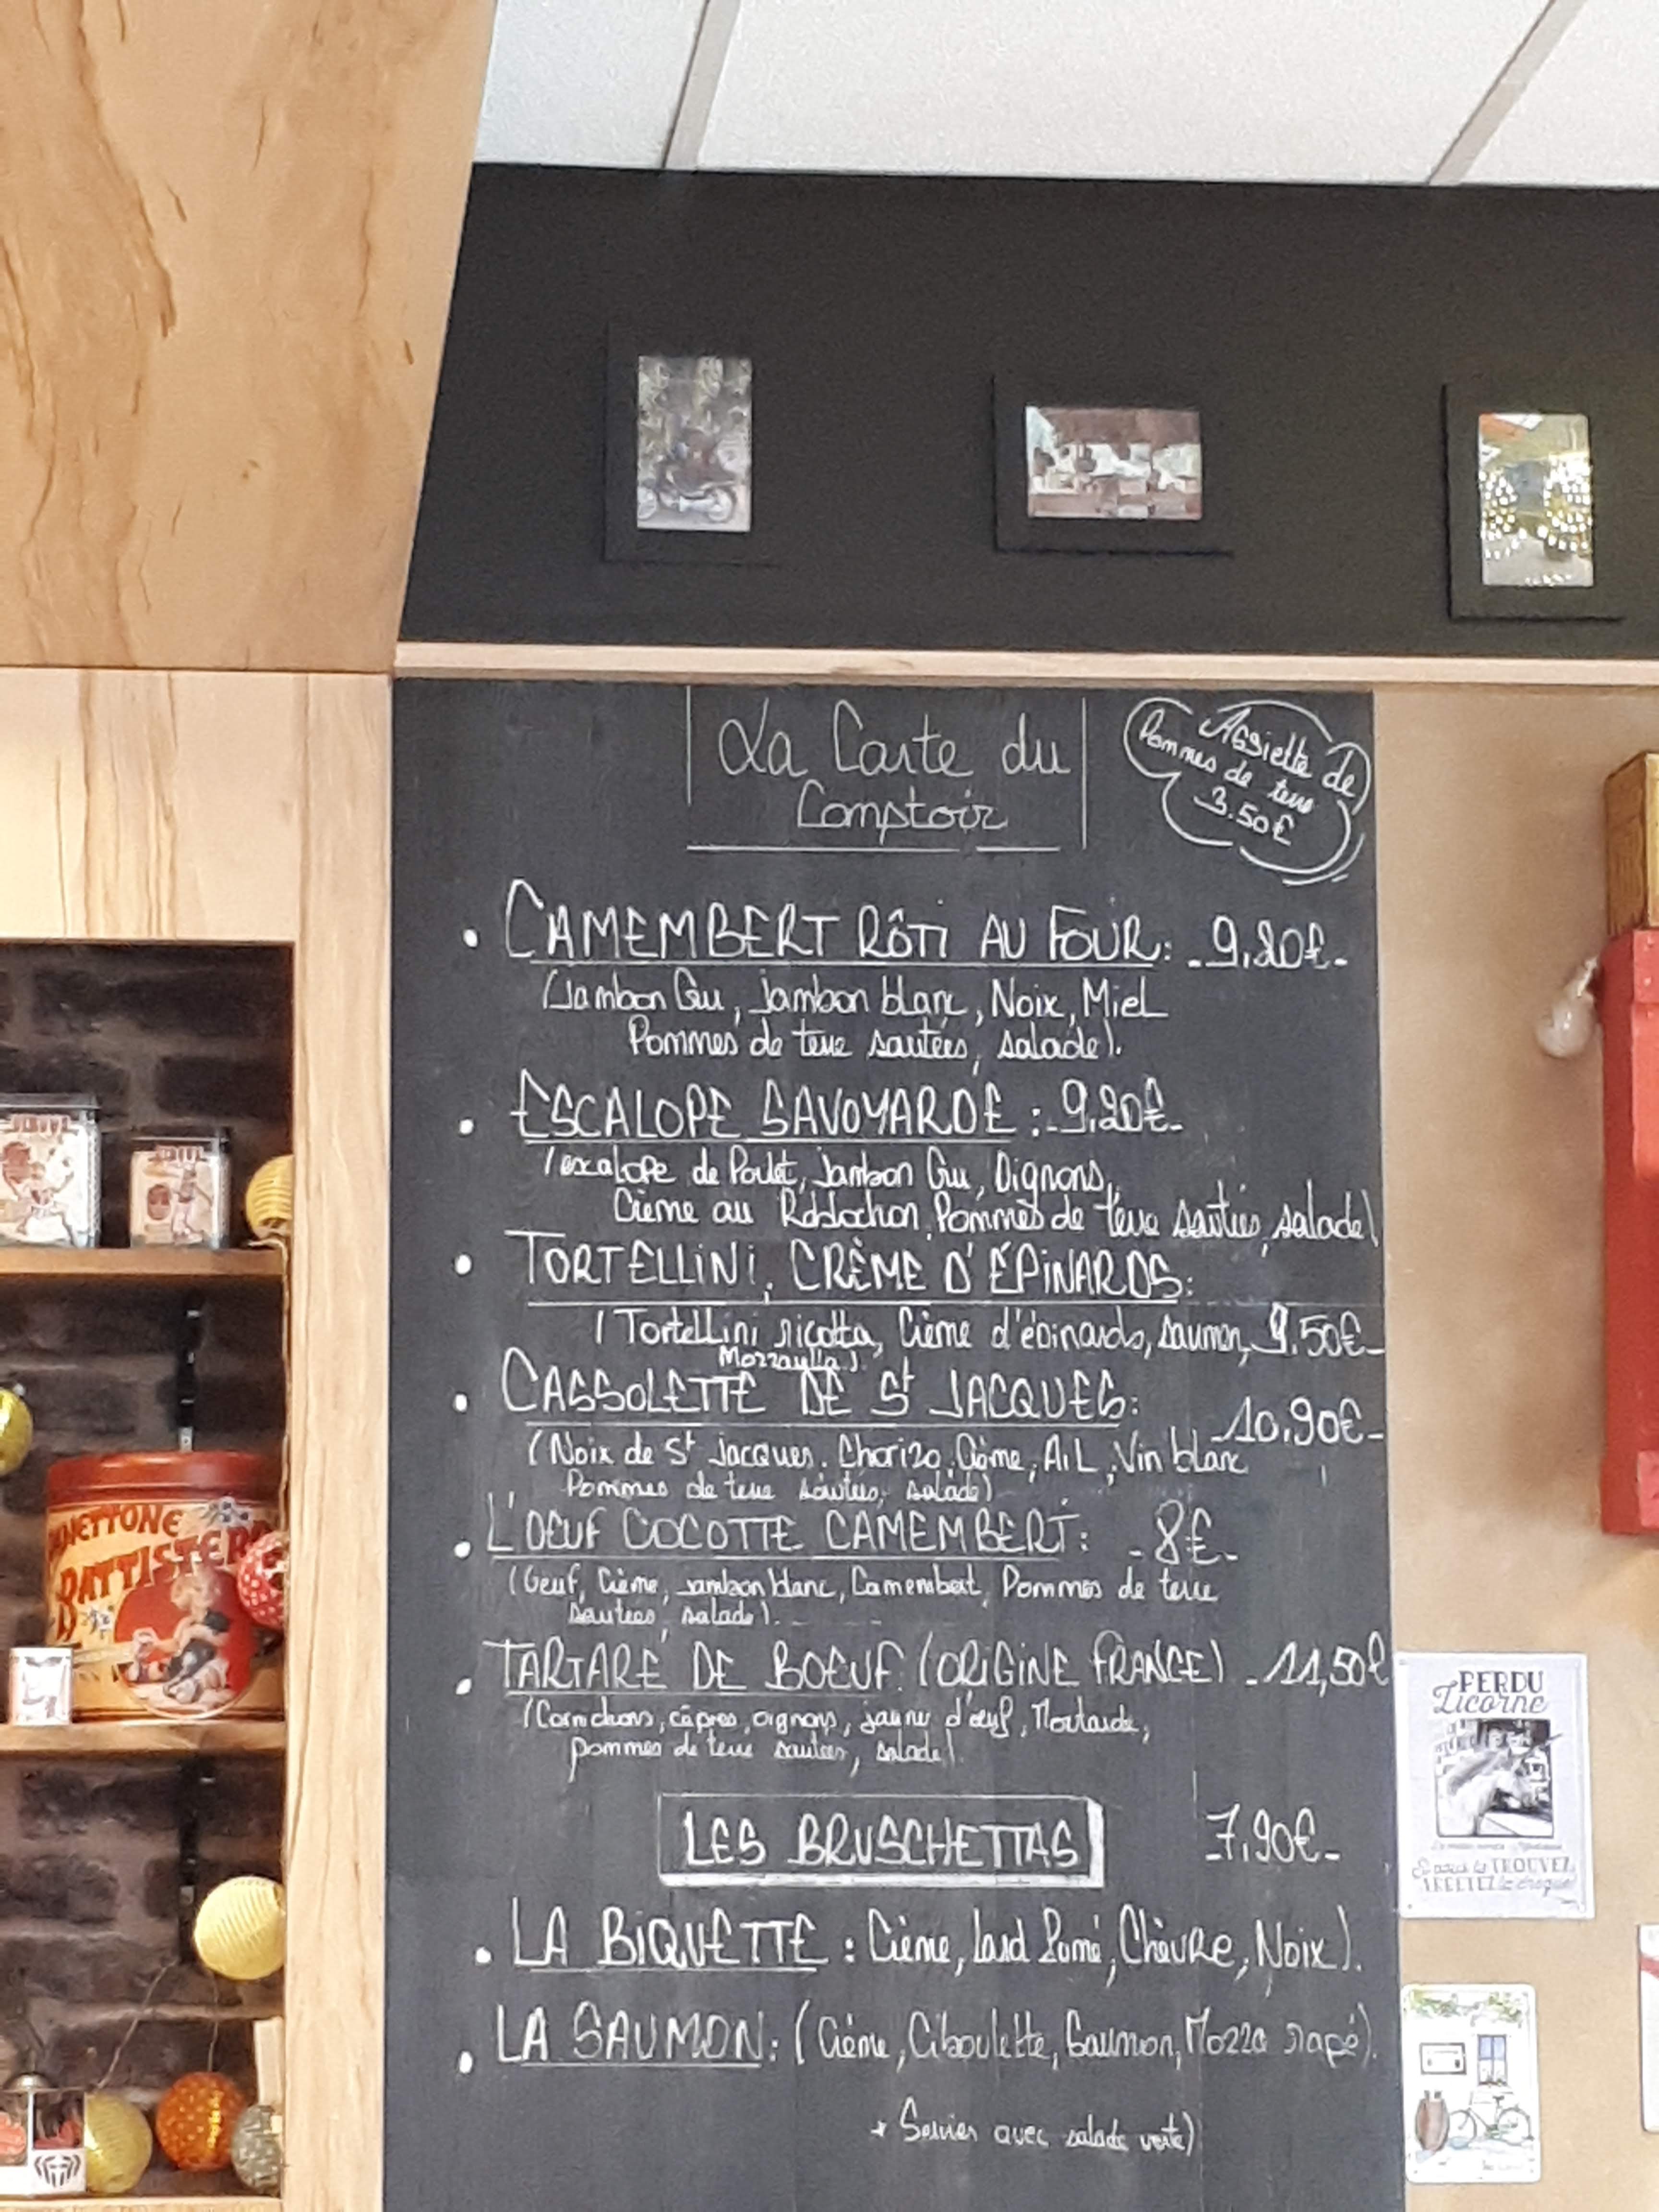 La Carte du
Comptoir
Assiette de
Pommes de terre
3.50€
• CAMEMBERT RÔTI AU FOUR: -9,20€-
(Jambon Cru, Jambon blanc, Noix, Miel
Pommes de terre sautées, salade).
• ESCALOPE SAVOYARDE: -9,20€-
(escalope de Poulet, Jambon Cru, Oignons,
Crème au Reblochon, Pommes de terre sautées, salade)
• TORTELLINI, CRÈME D'ÉPINARDS:
(Tortellini ricotta, Crème d'épinards, saumon, 9.50€-
Mozzarella)
• CASSOLETTE DE St JACQUES: -10.90€-
(Noix de St Jacques, Chorizo, Crème, AiL, Vin blanc
Pommes de terre sautées, salade)
• L'OEUF COCOTTE CAMEMBERT: -8€-
(Oeuf, Crème, jambon blanc, Camembert, Pommes de terre
sautées, salade).
• TARTARE DE BOEUF (ORIGINE FRANCE) -11,50€
(Cornichons, câpres, oignons, jaune d'œuf, Moutarde,
pommes de terre sautées, salade)
LES BRUSCHETTAS -7,90€-
• LA BIQUETTE : Crème, lard fumé, Chèvre, Noix).
• LA SAUMON: (Crème, Ciboulette, Saumon, Mozza rapé).
* Servies avec salade verte)
PANETTONE
BATTISTERO
PERDU
Licorne
TROUVEZ